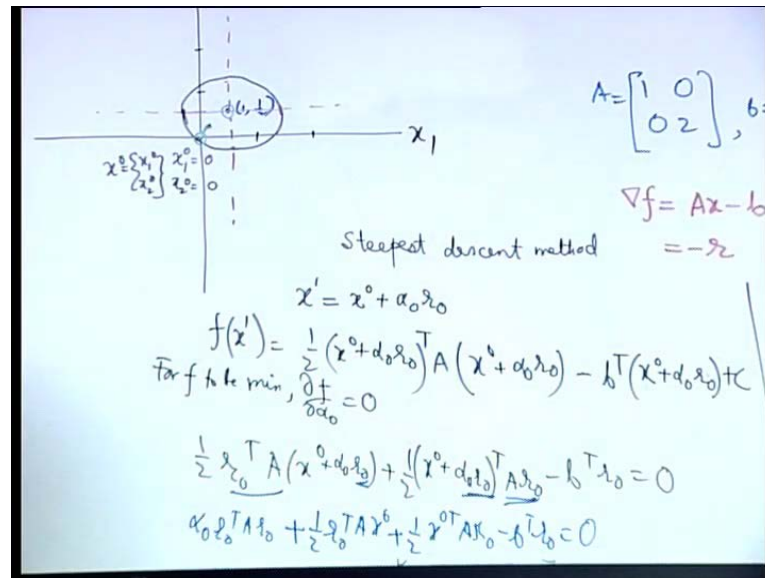 (1, ½)
x₁
x⁰ = {x₁⁰ x₂⁰} x₁⁰ = 0 x₂⁰ = 0
A = [1 0 0 2], b =
∇f = Ax - b
= -r
Steepest descent method
x¹ = x⁰ + α₀r₀
f(x¹) = ½(x⁰+α₀r₀)ᵀA(x⁰+α₀r₀) - bᵀ(x⁰+α₀r₀)+C
For f to be min, ∂f/∂α₀ = 0
½ r₀ᵀA(x⁰+α₀r₀) + ½(x⁰+α₀r₀)ᵀAr₀ - bᵀr₀ = 0
α₀r₀ᵀAr₀ + ½r₀ᵀAx⁰ + ½x⁰ᵀAr₀ - bᵀr₀ = 0